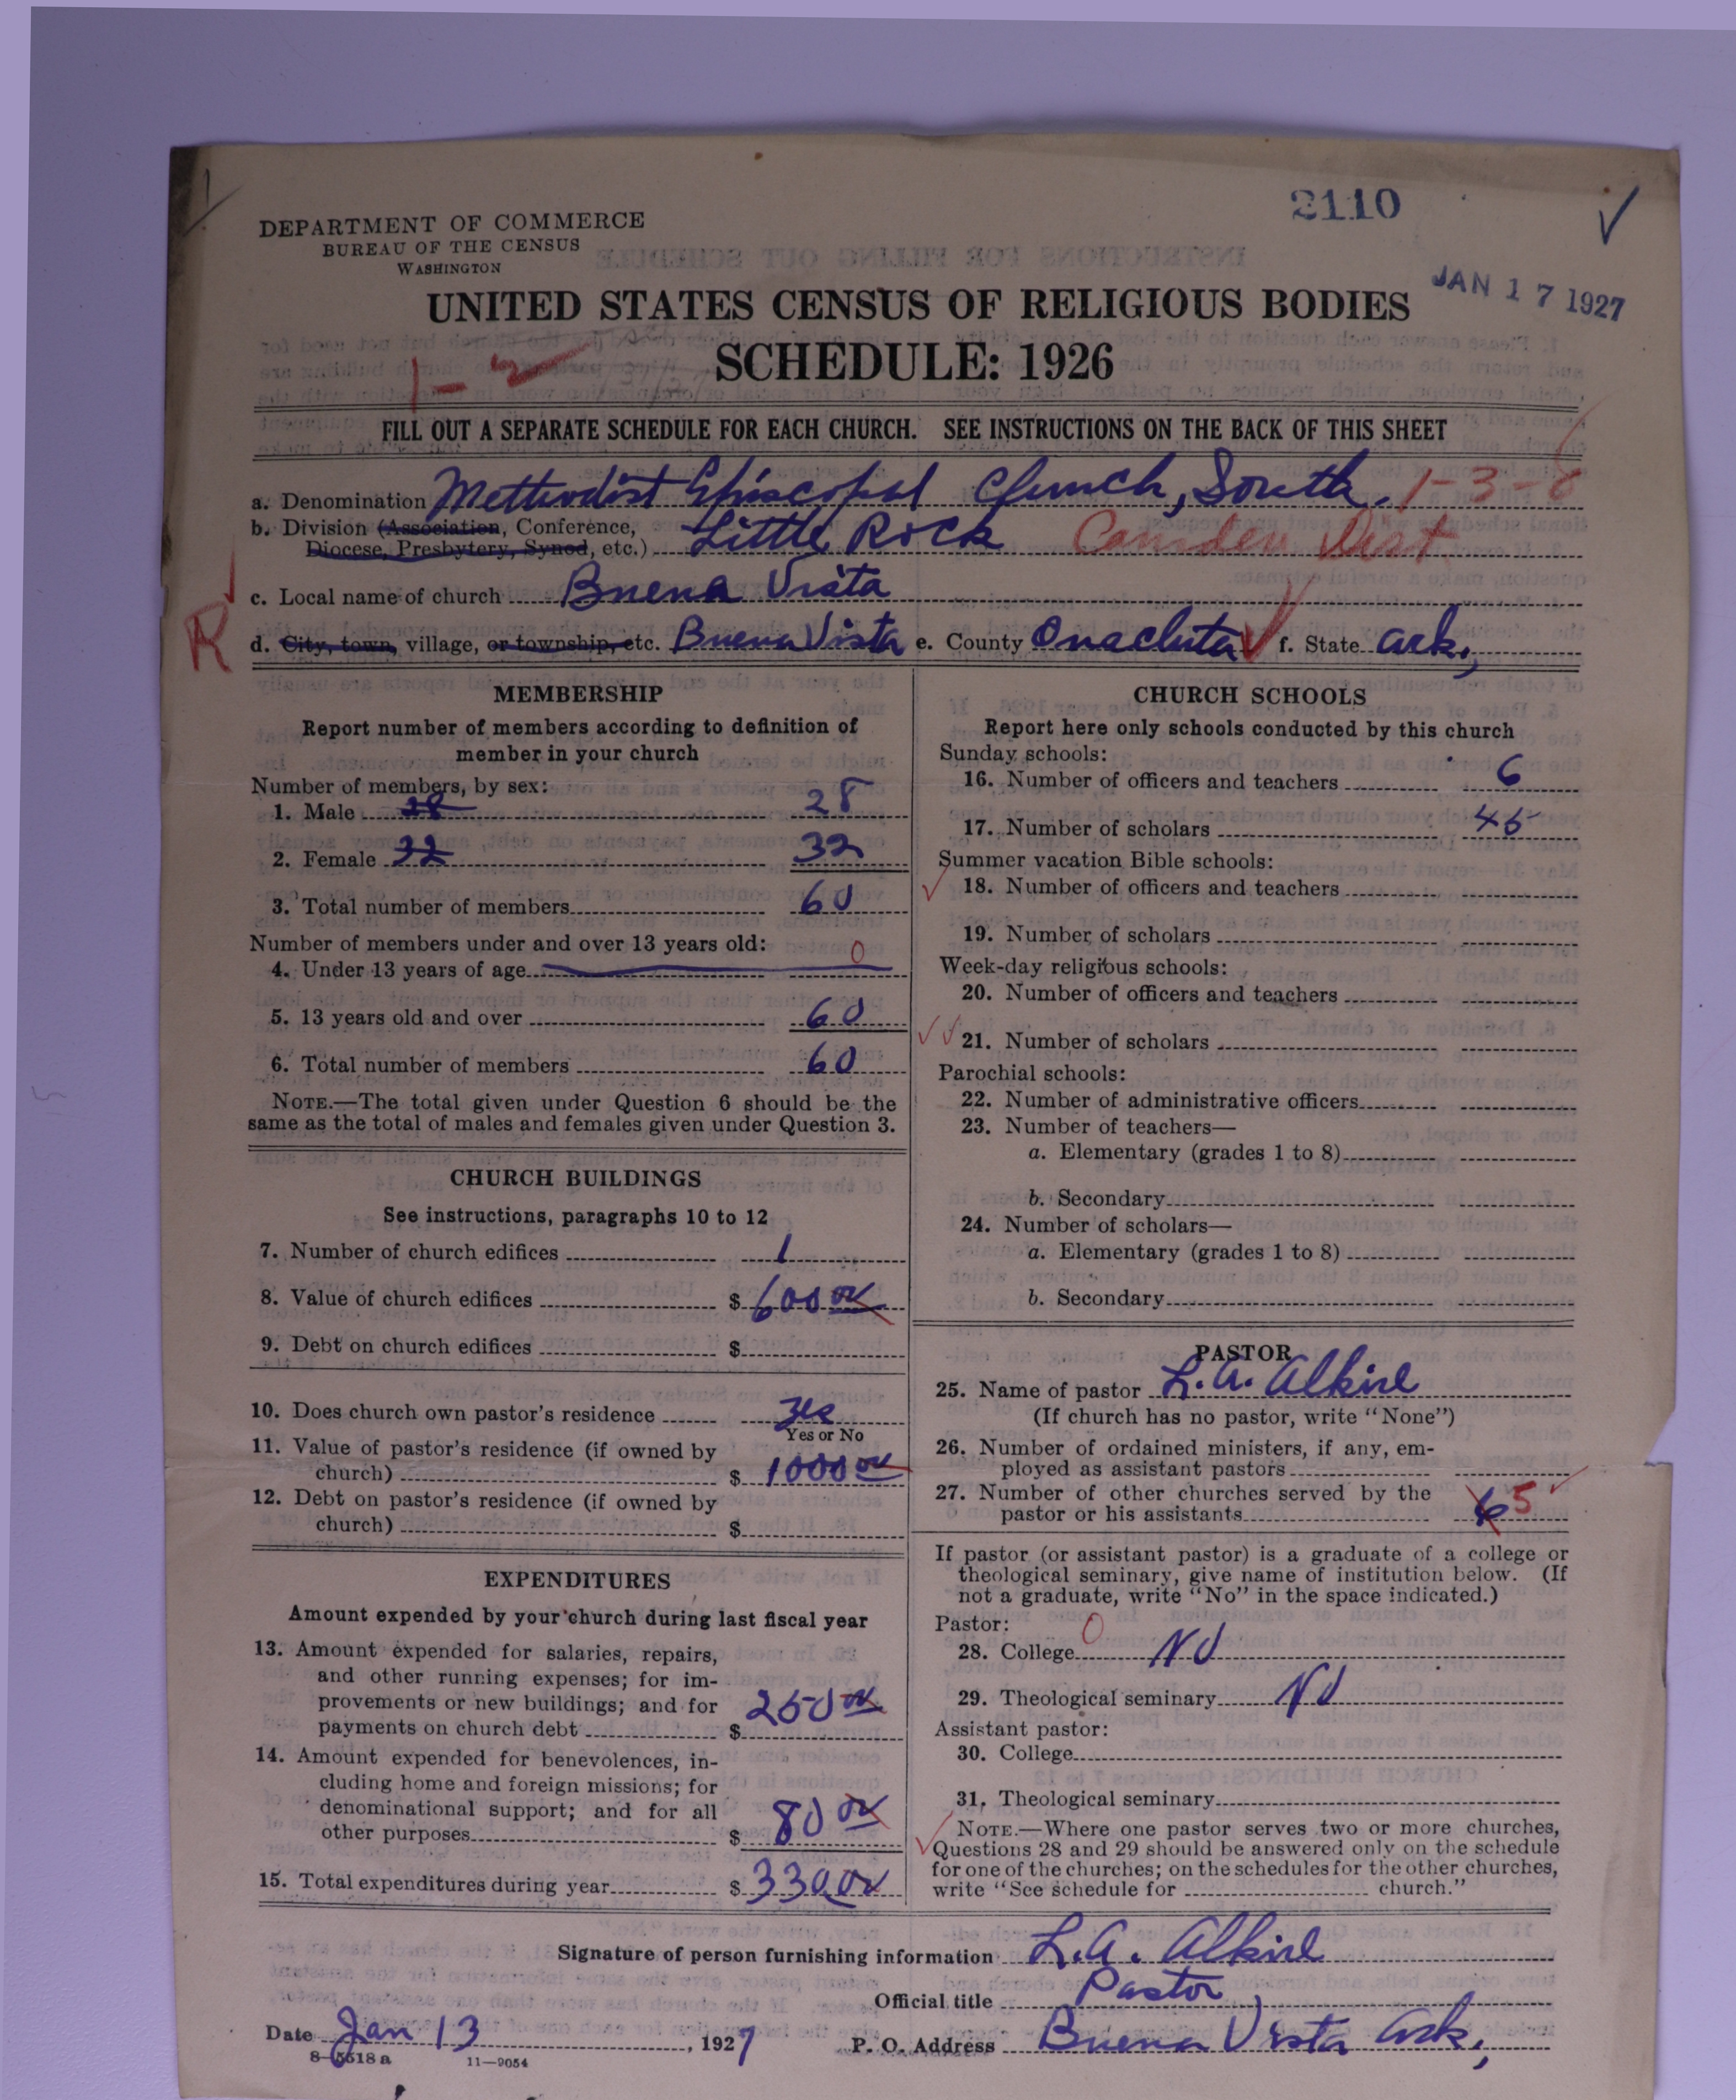 2110
DEPARTMENT OF COMMERCE
BUREAU OF THE CENSUS
WASHINGTON
JAN 17 1927
UNITED STATES CENSUS OF RELIGIOUS BODIES
SCHEDULE: 1926
1-2
FILL OUT A SEPARATE SCHEDULE FOR EACH CHURCH. SEE INSTRUCTIONS ON THE BACK OF THIS SHEET
a. Denomination Methodist Episcopal Church, South. 1-3-8
b. Division (Association, Conference, Little Rock Camden Dist
Diocese, Presbytery, Synod, etc.)
c. Local name of church Buena Vista
R
d. City, town, village, or township, etc. Buena Vista e. County Ouachita f. State Ark.,
MEMBERSHIP
Report number of members according to definition of
member in your church
Number of members, by sex:
1. Male 28 28
2. Female 32 32
3. Total number of members 60
Number of members under and over 13 years old:
4. Under 13 years of age 0
5. 13 years old and over 60
6. Total number of members 60
NOTE.—The total given under Question 6 should be the
same as the total of males and females given under Question 3.
CHURCH BUILDINGS
See instructions, paragraphs 10 to 12
7. Number of church edifices 1
8. Value of church edifices $ 600 00
9. Debt on church edifices $
10. Does church own pastor's residence Yes
Yes or No
11. Value of pastor's residence (if owned by
church) $ 1000 00
12. Debt on pastor's residence (if owned by
church) $
EXPENDITURES
Amount expended by your church during last fiscal year
13. Amount expended for salaries, repairs,
and other running expenses; for im-
provements or new buildings; and for
payments on church debt $ 250 00
14. Amount expended for benevolences, in-
cluding home and foreign missions; for
denominational support; and for all
other purposes $ 80 00
15. Total expenditures during year $ 330.00
CHURCH SCHOOLS
Report here only schools conducted by this church
Sunday schools:
16. Number of officers and teachers 6
17. Number of scholars 45
Summer vacation Bible schools:
18. Number of officers and teachers
19. Number of scholars
Week-day religious schools:
20. Number of officers and teachers
21. Number of scholars
Parochial schools:
22. Number of administrative officers
23. Number of teachers—
a. Elementary (grades 1 to 8)
b. Secondary
24. Number of scholars—
a. Elementary (grades 1 to 8)
b. Secondary
PASTOR
25. Name of pastor L. A. Alkire
(If church has no pastor, write "None")
26. Number of ordained ministers, if any, em-
ployed as assistant pastors
27. Number of other churches served by the
pastor or his assistants 6 5
If pastor (or assistant pastor) is a graduate of a college or
theological seminary, give name of institution below. (If
not a graduate, write "No" in the space indicated.)
Pastor: 0
28. College No
29. Theological seminary No
Assistant pastor:
30. College
31. Theological seminary
NOTE.—Where one pastor serves two or more churches,
Questions 28 and 29 should be answered only on the schedule
for one of the churches; on the schedules for the other churches,
write "See schedule for church."
Signature of person furnishing information L. A. Alkire
Official title Pastor
Date Jan 13, 1927 P. O. Address Buena Vista Ark.,
8-5518 a 11-9054